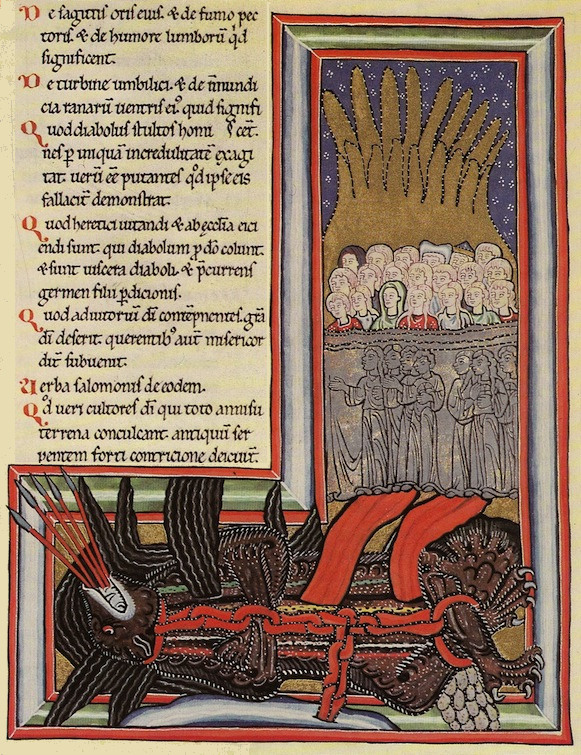 De sagittis oris eius. & de fumo pec
toris. & de humore lumborū qd
significent.
De turbine umbilici. & de inmundi
cia ranarū uentris ei⁹ quid signifi
Quod diabolus stultos homi cent.
nes p̄ iniquā incredulitatē exagi
tat. uerū eē putantes qd ipse eis
fallacit̄ demonstrat.
Quod heretici uitandi & ab ęcclia eici
endi sunt. qui diabolum p̄ dō colunt.
& sunt uiscera diaboli. & p̄currens
germen filii p̄dicionis.
Quod adiutoriū di contēpnentes. grā
di deserit. querentib⁹ aut̄ misericor
dit̄ subuenit.
Verba salomonis de eodem.
Qd ueri cultores di qui toto annisu
terrena conculcant. antiquū ser
pentem forti contricione deiciūt.